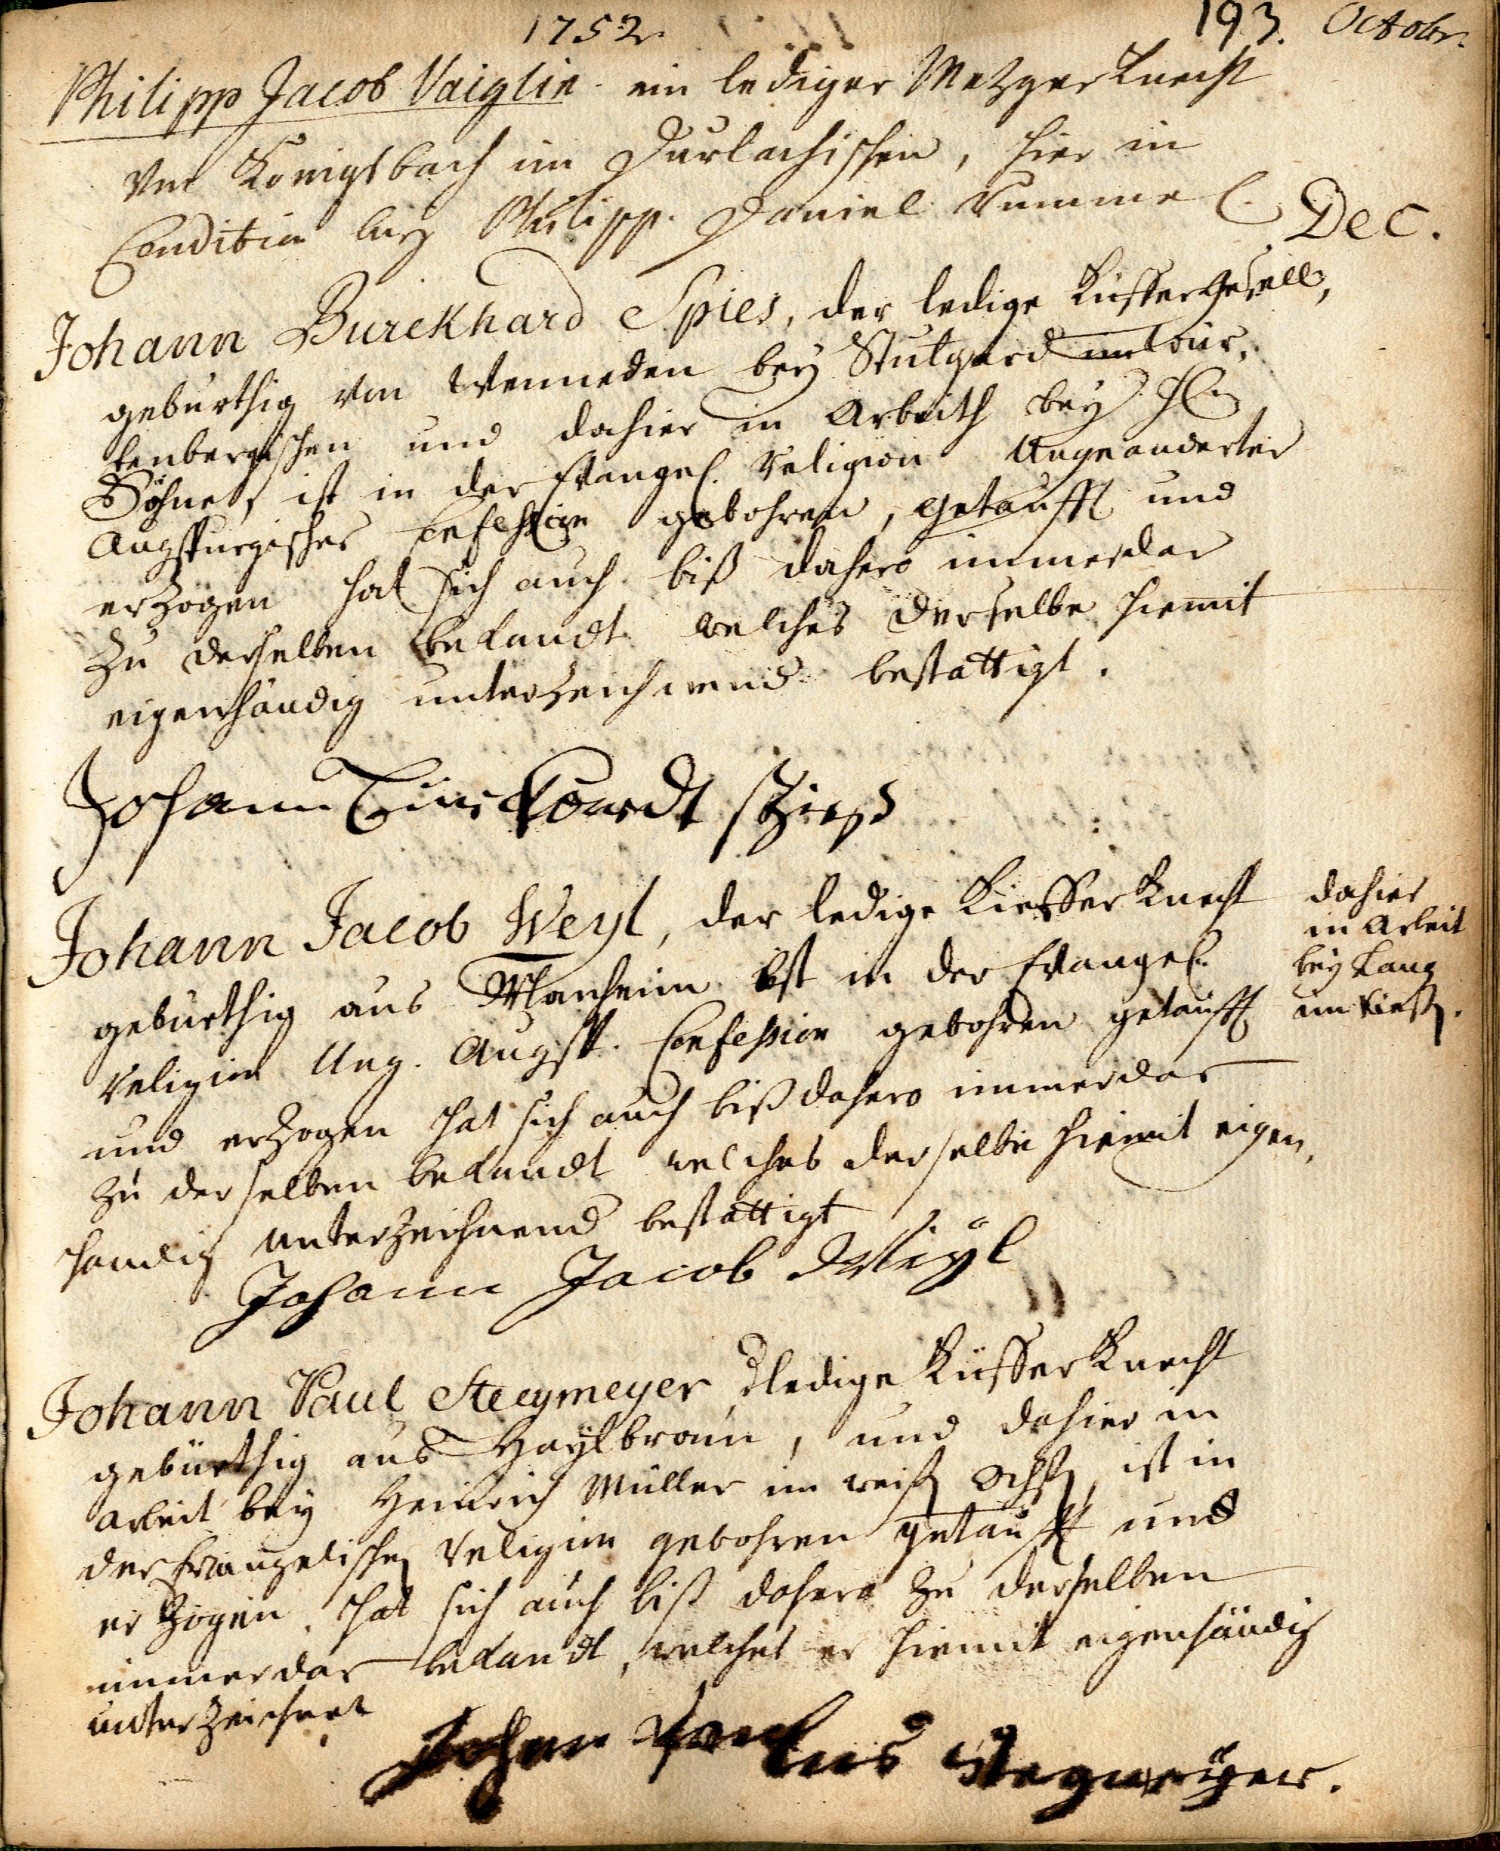 1752.
193. Octobr.
Philipp Jacob Vaiglin ein lediger Metzgerknecht
von Königsbach im Durlachischen, hier in
Condition bey Philipp Daniel Rummel.
Dec.
Johann Burckhard Spies, der ledige Küffergesell,
geburthig von Wenneden bey Stutgard im Wür,
tenbergischen und dahier in Arbeith bey H.
Böhner, ist in der Evangel. Religion Ungeanderter
Augspurgischer Confession gebohren, getaufft und
erzogen hat sich auch biß dahero immerdar
zu derselben bekandt welches derselbe hiemit
eigenhändig unterzeichnend bestattigt.
Johann Burckhardt Spieß
Johann Jacob Weyl, der ledige Kiefferknecht
geburthig aus Manheim ist in der Evangel.
Religion Ung. Augsp. Confession gebohren getaufft
und erzogen hat sich auch biß dahero immerdar
zu derselben bekandt welches derselbe hiemit eigen,
handig unterzeichnend bestattigt
dahier
in Arbeit
bey Lang
im
Johann Jacob Weÿl
Johann Paul Stegmeyer, d ledige Küfferknecht
gebürthig aus Haylbronn, und dahier in
Arbeit bey Heinrich Müller im weiß Ochß, ist in
der Evangelischen Religion gebohren getaufft und
erzogen, hat sich auch biß dahero zu derselben
immerdar bekandt, welches er hiemit eigenhändig
unterzeichnet
Johann Paulus Stegmeÿer.